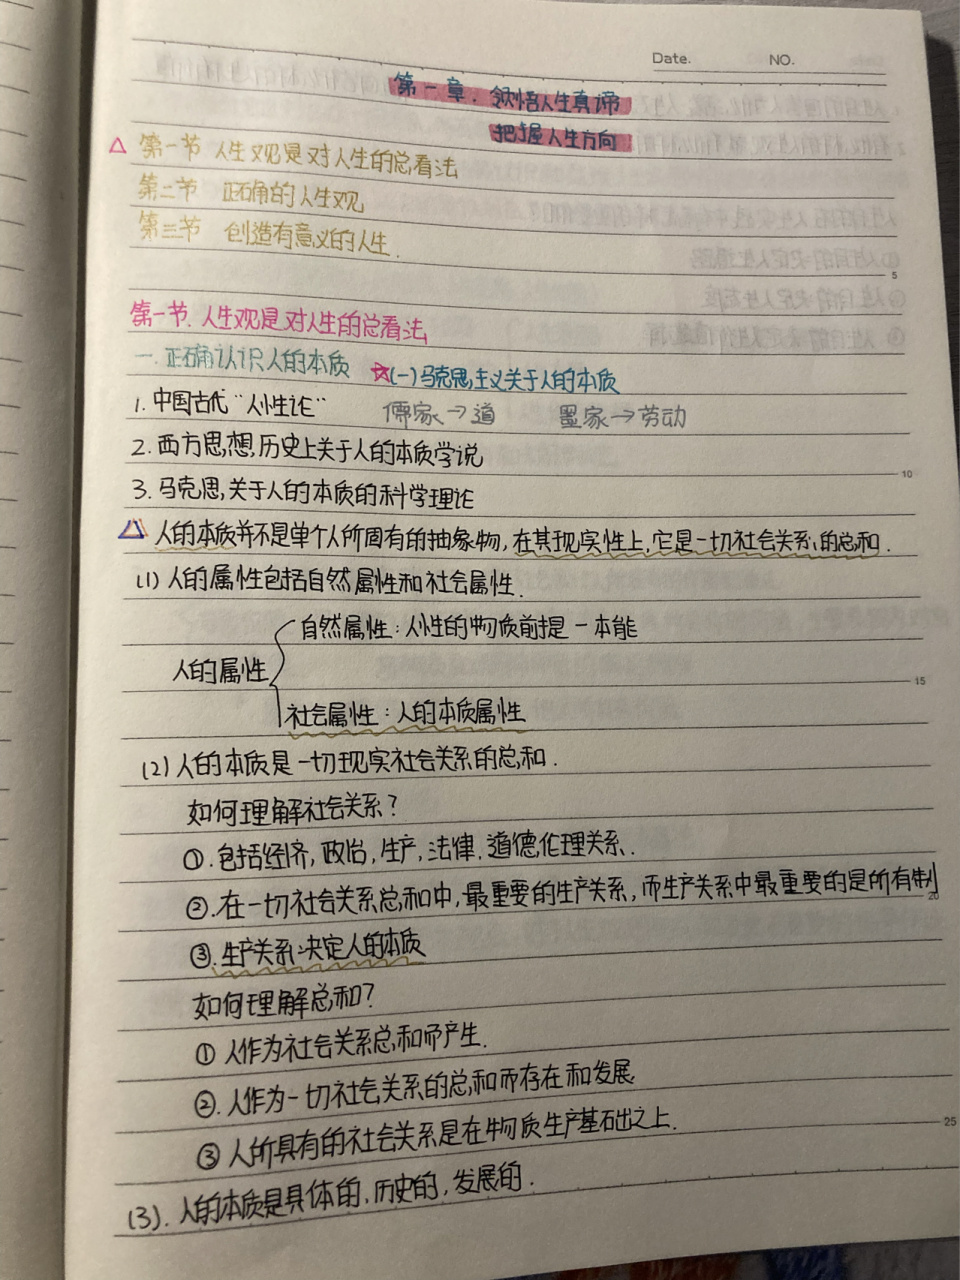 Date. NO.
第一章. 领悟人生真谛
把握人生方向
△ 第一节 人生观是对人生的总看法
第二节 正确的人生观
第三节 创造有意义的人生.
5
第一节. 人生观是对人生的总看法
一. 正确认识人的本质 ☆(一)马克思主义关于人的本质
1. 中国古代“人性论” 儒家→道 墨家→劳动
2. 西方思想,历史上关于人的本质学说
10
3. 马克思,关于人的本质的科学理论
△ 人的本质并不是单个人所固有的抽象物,在其现实性上,它是一切社会关系的总和.
(1) 人的属性包括自然属性和社会属性.
自然属性:人性的物质前提-本能
人的属性
15
社会属性:人的本质属性
(2) 人的本质是一切现实社会关系的总和.
如何理解社会关系?
①.包括经济,政治,生产,法律.道德伦理关系.
②.在一切社会关系总和中,最重要的生产关系,而生产关系中最重要的是所有制
20
③.生产关系决定人的本质
如何理解总和?
① 人作为社会关系总和而产生.
②.人作为一切社会关系的总和而存在和发展
③ 人所具有的社会关系是在物质生产基础之上.
25
(3). 人的本质是具体的,历史的,发展的.